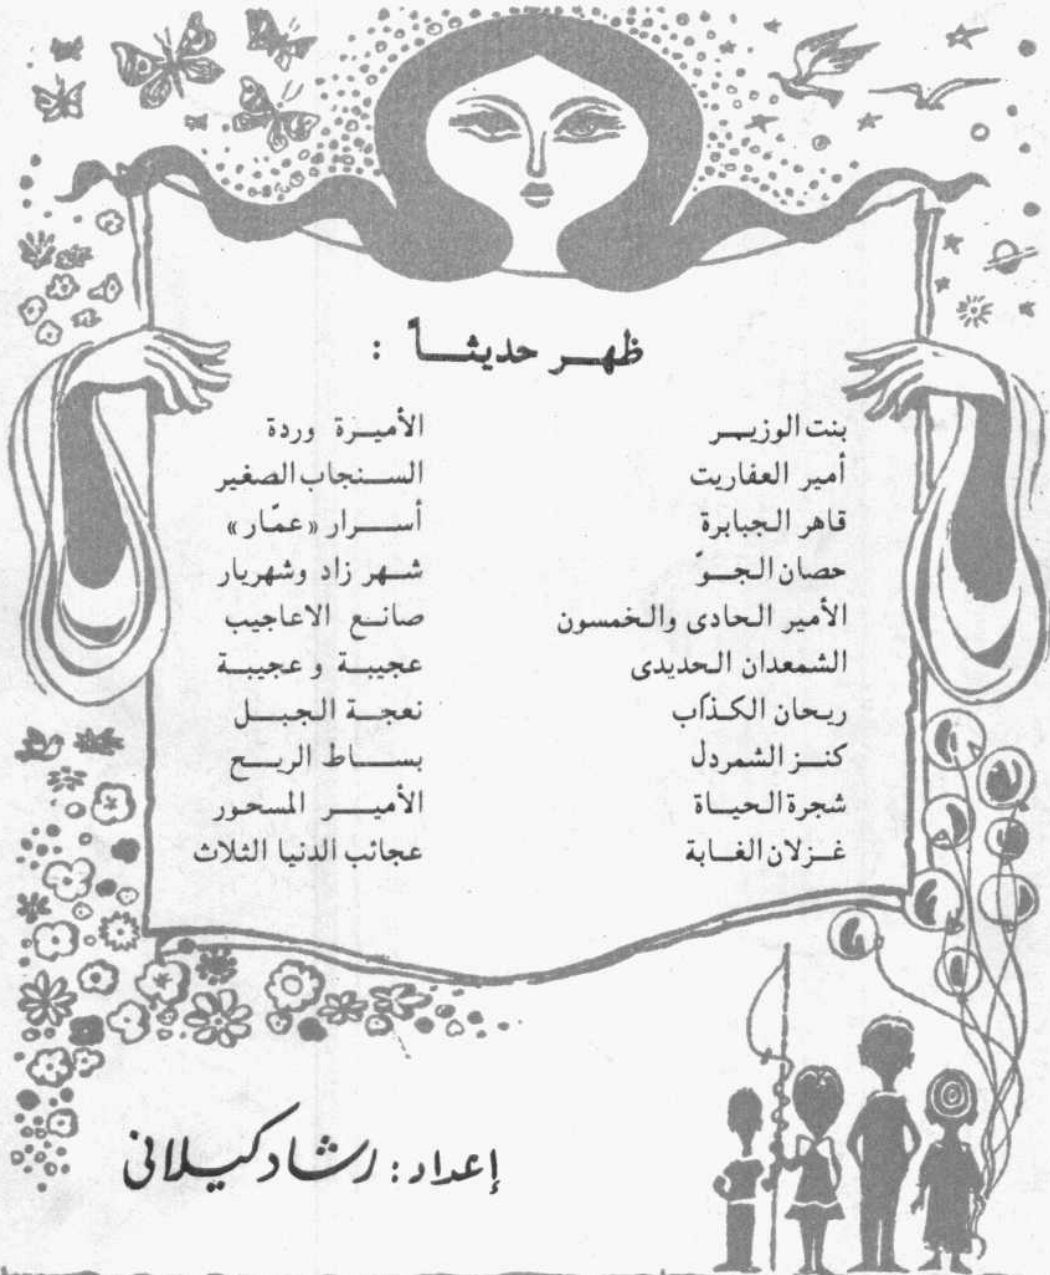 ظهر حديثاً :
بنت الوزير
أمير العفاريت
قاهر الجبابرة
حصان الجوّ
الأمير الحادى والخمسون
الشمعدان الحديدى
ريحان الكذاب
كنز الشمردل
شجرة الحياة
غزلان الغابة
الأميرة وردة
السنجاب الصغير
أسرار «عمّار»
شهر زاد وشهريار
صانع الاعاجيب
عجيبة وعجيبة
نعجة الجبل
بساط الريح
الأمير المسحور
عجائب الدنيا الثلاث
إعداد : رشاد كيلانى